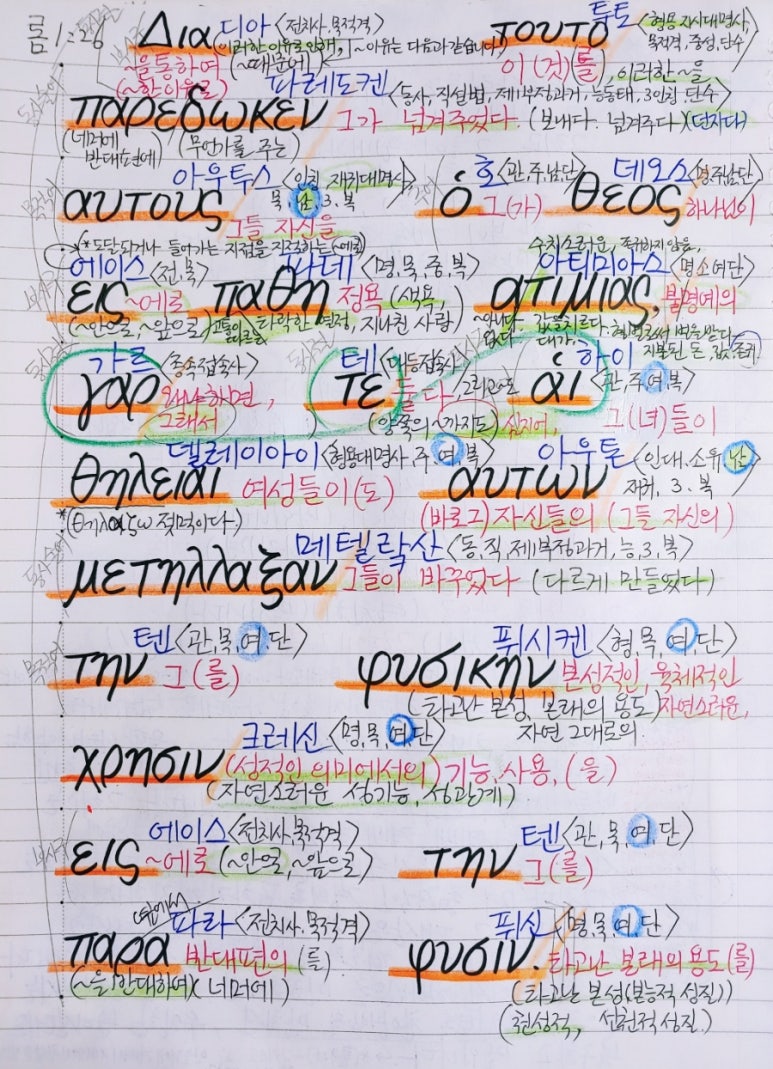 롬 1:26
Δια 디아 <전치사.목적격> τουτο 투토 <형용.지시대명사, 목적격, 중성, 단수>
(이러한 이유로 인해, ~이유는 다음과 같습니다)
~을통하여 (~때문에) 이 (것)(를), 이러한 ~을
(~한이유로)
παρεδωκεν 파레도켄 <동사, 직설법, 제1부정과거, 능동태, 3인칭.단수>
그가 넘겨주었다. (보내다. 넘겨주다)(던지다)
(너머에, 반대편에) (무언가를 주는)
αυτους 아우투스 <인칭.재귀대명사, 목.남.3.복> ὁ 호 <관,주,남단> θεος 데오스 <명주남단>
그들 자신을 그(가) 하나님이
(*도달되거나 들어가는 지점을 지적하는 (~에로)
수치스러운, 존귀하지않음,
εις 에이스 <전.목> παθη 파데 <명,목,중,복> ατιμιας, 아티미아스 <명소여단>
~에로 정욕 (색욕, 불명예의
(~안으로, ~앞으로) 타락한 열정, 지나친 사랑)
γαρ 가르 <종속접속사> τε 테 <대등접속사> ἁι 하이 <관,주,여,복>
왜냐하면, 그래서 둘다, 그리고 (양쪽의 ~까지도) 심지어, 그(녀)들이
θηλειαι 델레이아이 <형용대명사,주,여,복> αυτων 아우톤 <인대.소유,남 재귀, 3.복>
여성들이(도) (바로그)자신들의 (그들 자신의)
*(θηλαζω 젖먹이다.)
μετηλλαξαν 메텔락산 <동.직,제1부정과거,능,3,복>
그들이 바꾸었다 (다르게 만들었다)
την 텐 <관,목,여.단> φυσικην 퓌시켄 <형,목,여,단>
그(를) 본성적인, 육체적인
(타고난 본성, 본래의 용도) 자연스러운,
자연 그대로의
χρησιν 크레신 <명,목,여,단>
(성적인 의미에서의) 기능, 사용, (을)
(자연스러운 성기능, 성관계)
εις 에이스 <전치사.목적격> την 텐 <관,목,여,단>
~에로 (~안으로, ~앞으로) 그(를)
παρα 파라 <전치사.목적격> φυσιν. 퓌신 <명,목,여,단>
반대편의 (를) 타고난 본래의 용도(를)
(~을 반대하여)(너머에) (타고난 본성(본능적 성질))
(천성적, 선천적 성질.)